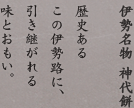 伊勢名物 神代餅
歴史ある
この伊勢路に、
引き継がれる
味とおもい。